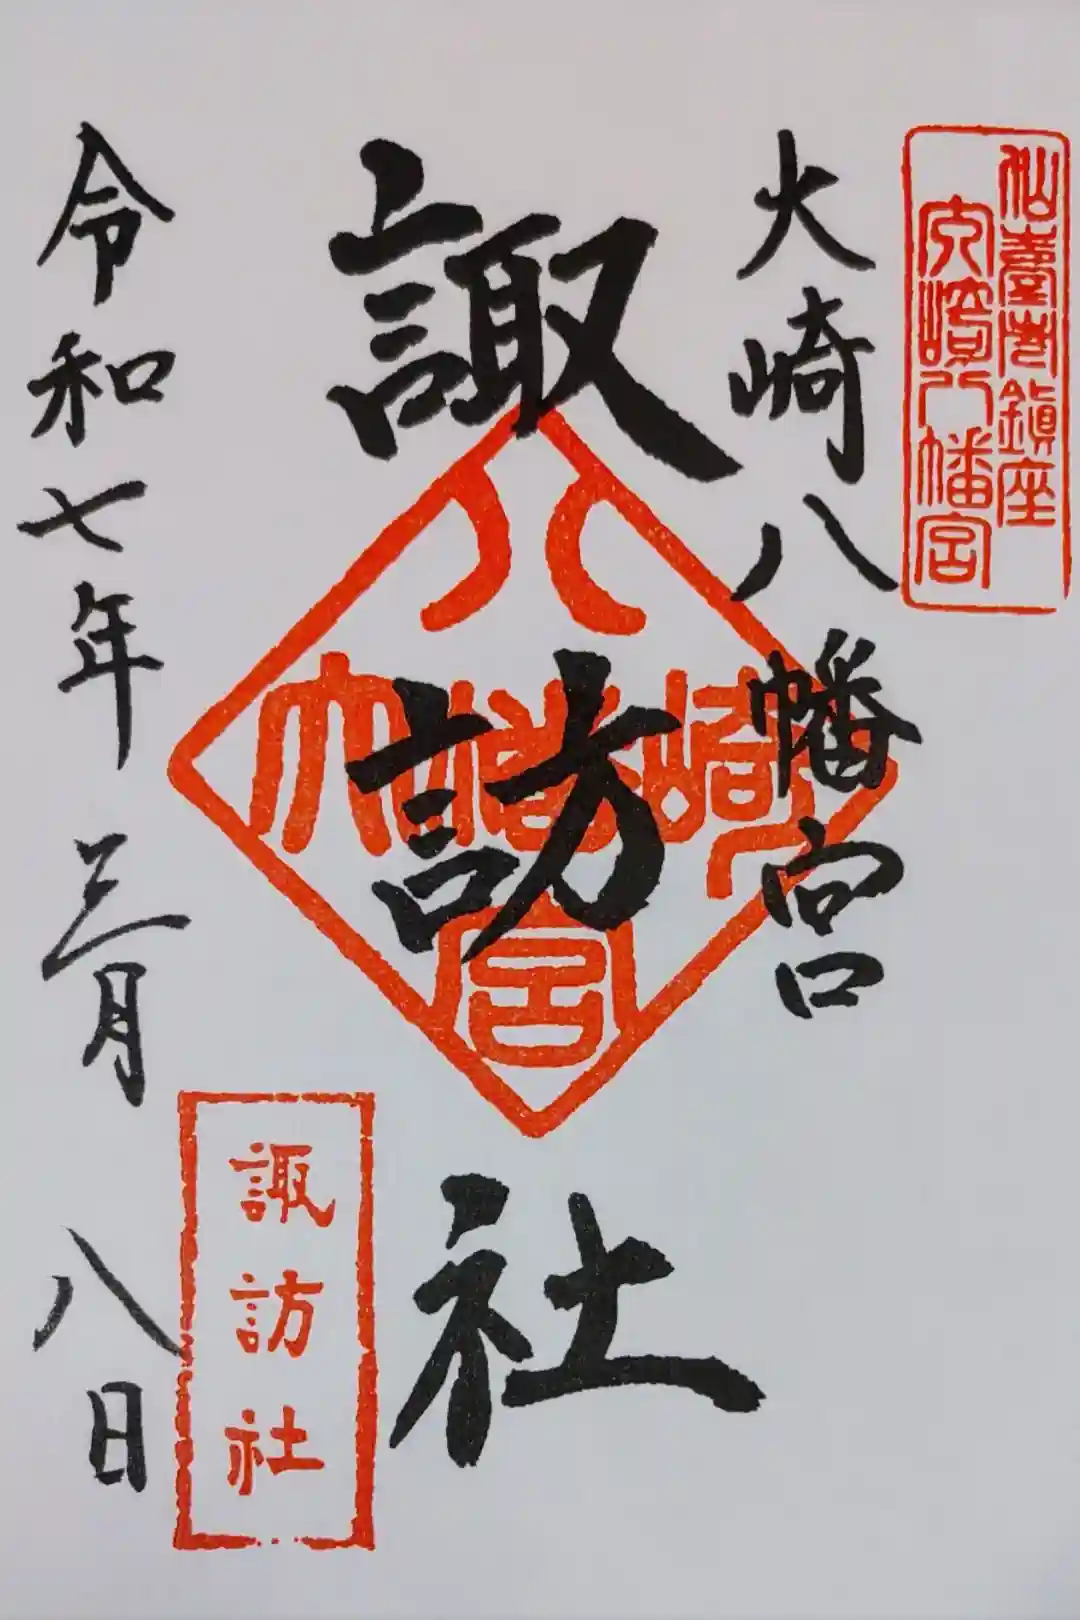 仙臺市鎮座
大崎八幡宮
大崎八幡宮
諏訪社
八幡宮
大崎
諏訪社
令和七年三月八日